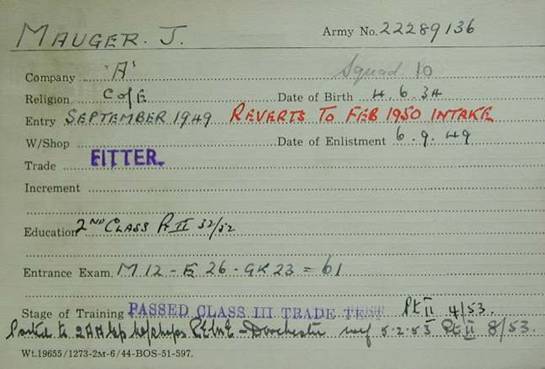 MAUGER. J. Army No. 22289136
Company 'A' Squad 10
Religion C of E Date of Birth 4. 6. 34
Entry SEPTEMBER 1949 REVERTS TO FEB 1950 INTAKE
W/Shop Date of Enlistment 6. 9. 49
Trade FITTER.
Increment
Education 2ND CLASS Pt II 32/52
Entrance Exam. M.12 - E 26 - GK 23 = 61
Stage of Training PASSED CLASS III TRADE TEST Pt II 4/53.
Posted to 2 AA REME Dorchester wef 5.2.53 Pt II 8/53.
Wt.19655/1273-2M-6/44-BOS-51-597.